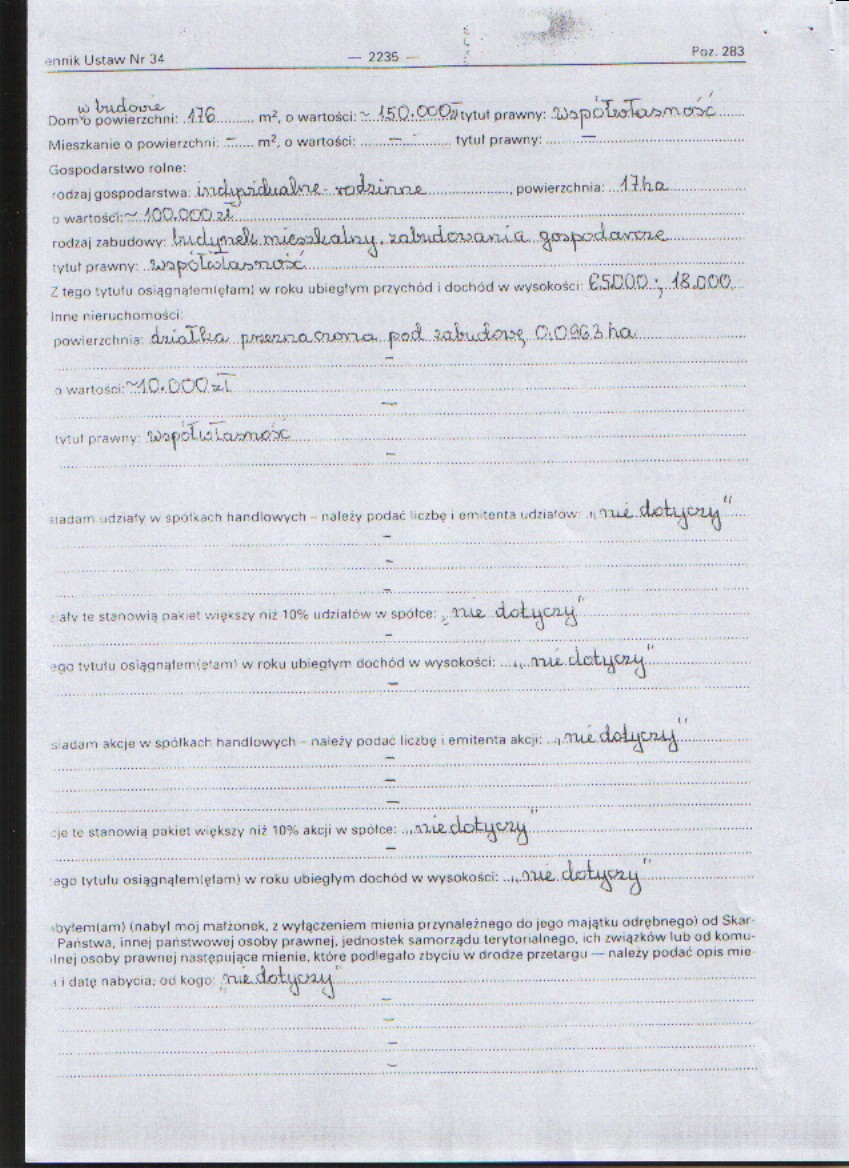 ennik Ustaw Nr 34 — 2235 — Poz. 283
w budowie
Dom o powierzchni: 176 m², o wartości: ~ 150.000 zł tytuł prawny: współwłasność
Mieszkanie o powierzchni: — m², o wartości: — tytuł prawny: —
Gospodarstwo rolne:
rodzaj gospodarstwa: indywidualne - rodzinne, powierzchnia: 17 ha
o wartości: ~ 100.000 zł
rodzaj zabudowy: budynek mieszkalny, zabudowania gospodarcze
tytuł prawny: współwłasność
Z tego tytułu osiągnąłem(ęłam) w roku ubiegłym przychód i dochód w wysokości: 65000 ; 18.000
Inne nieruchomości:
powierzchnia: działka przeznaczona pod zabudowę 0.0963 ha
—
o wartości: ~10.000 zł
—
tytuł prawny: współwłasność
—
siadam udziały w spółkach handlowych – należy podać liczbę i emitenta udziałów: „nie dotyczy"
—
—
—
ziały te stanowią pakiet większy niż 10% udziałów w spółce: „nie dotyczy"
—
ego tytułu osiągnąłem(ęłam) w roku ubiegłym dochód w wysokości: „nie dotyczy"
—
siadam akcje w spółkach handlowych – należy podać liczbę i emitenta akcji: „nie dotyczy"
—
—
—
cje te stanowią pakiet większy niż 10% akcji w spółce: „nie dotyczy"
—
ego tytułu osiągnąłem(ęłam) w roku ubiegłym dochód w wysokości: „nie dotyczy"
byłem(am) (nabył mój małżonek, z wyłączeniem mienia przynależnego do jego majątku odrębnego) od Skar-
Państwa, innej państwowej osoby prawnej, jednostek samorządu terytorialnego, ich związków lub od komu-
lnej osoby prawnej następujące mienie, które podlegało zbyciu w drodze przetargu — należy podać opis mie-
a i datę nabycia, od kogo: „nie dotyczy"
—
—
—
—